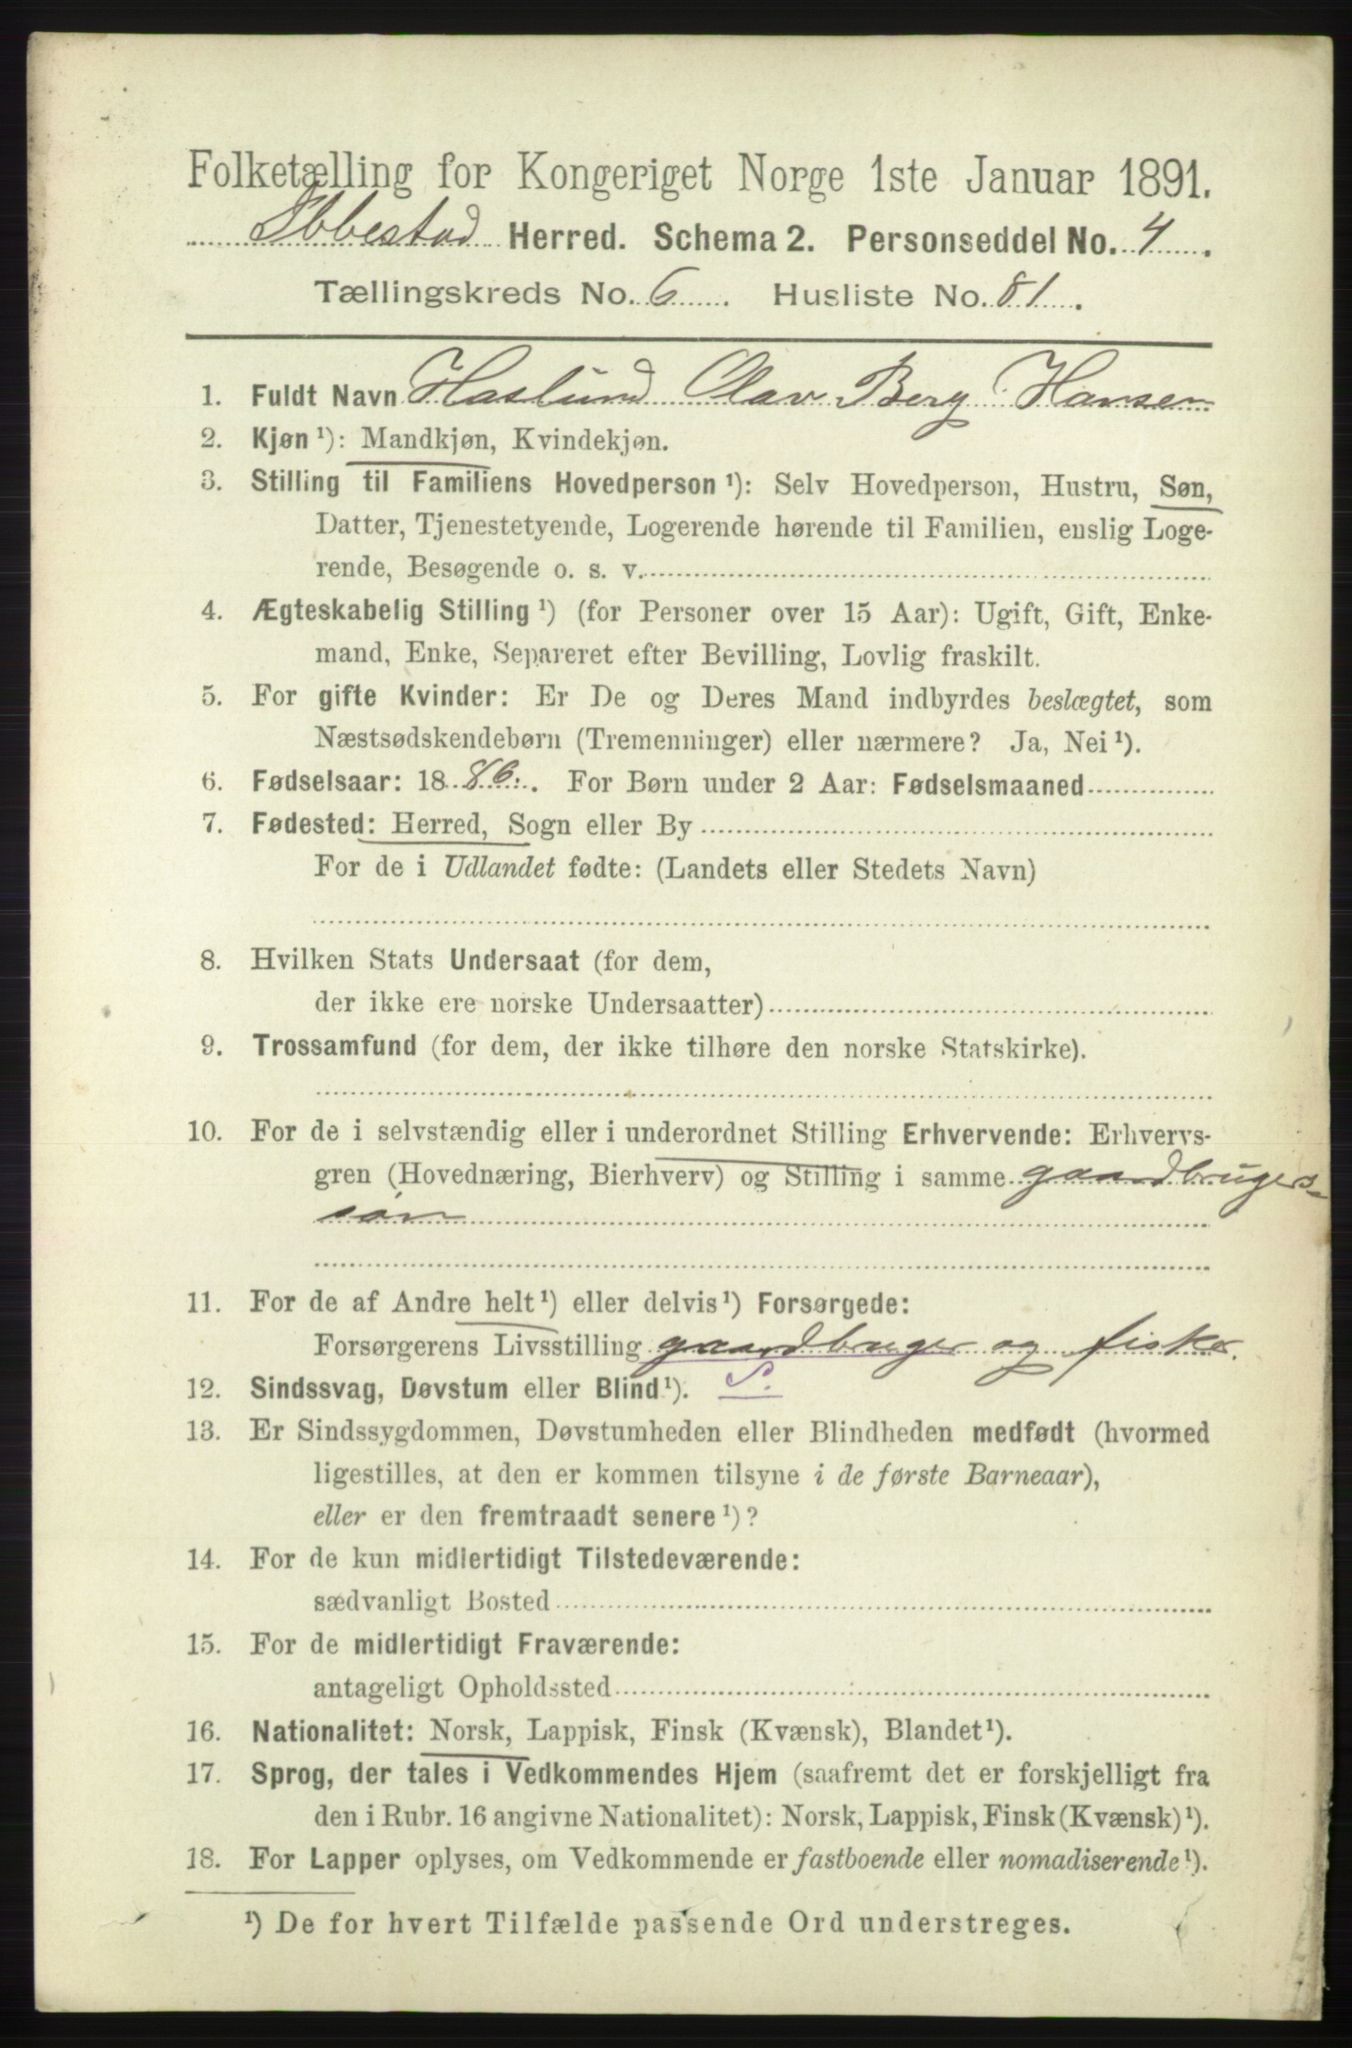 Folketælling for Kongeriget Norge 1ste Januar 1891.
Ibbestad Herred. Schema 2. Personseddel No. 4.
Tællingskreds No. 6. Husliste No. 81.
1. Fuldt Navn Haslund Olav Berg Hansen
2. Kjøn ¹): Mandkjøn, Kvindekjøn.
3. Stilling til Familiens Hovedperson ¹): Selv Hovedperson, Hustru, Søn,
Datter, Tjenestetyende, Logerende hørende til Familien, enslig Loge-
rende, Besøgende o. s. v.
4. Ægteskabelig Stilling ¹) (for Personer over 15 Aar): Ugift, Gift, Enke-
mand, Enke, Separeret efter Bevilling, Lovlig fraskilt.
5. For gifte Kvinder: Er De og Deres Mand indbyrdes beslægtet, som
Næstsødskendebørn (Tremenninger) eller nærmere? Ja, Nei ¹).
6. Fødselsaar: 1886. For Børn under 2 Aar: Fødselsmaaned
7. Fødested: Herred, Sogn eller By
For de i Udlandet fødte: (Landets eller Stedets Navn)
8. Hvilken Stats Undersaat (for dem,
der ikke ere norske Undersaatter)
9. Trossamfund (for dem, der ikke tilhøre den norske Statskirke).
10. For de i selvstændig eller i underordnet Stilling Erhvervende: Erhvervs-
gren (Hovednæring, Bierhverv) og Stilling i samme gaardbrugers-
søn
11. For de af Andre helt ¹) eller delvis ¹) Forsørgede:
Forsørgerens Livsstilling gaardbruger og fisker.
12. Sindssvag, Døvstum eller Blind ¹). S.
13. Er Sindssygdommen, Døvstumheden eller Blindheden medfødt (hvormed
ligestilles, at den er kommen tilsyne i de første Barneaar),
eller er den fremtraadt senere ¹)?
14. For de kun midlertidigt Tilstedeværende:
sædvanligt Bosted
15. For de midlertidigt Fraværende:
antageligt Opholdssted
16. Nationalitet: Norsk, Lappisk, Finsk (Kvænsk), Blandet ¹).
17. Sprog, der tales i Vedkommendes Hjem (saafremt det er forskjelligt fra
den i Rubr. 16 angivne Nationalitet): Norsk, Lappisk, Finsk (Kvænsk) ¹).
18. For Lapper oplyses, om Vedkommende er fastboende eller nomadiserende ¹).
¹) De for hvert Tilfælde passende Ord understreges.